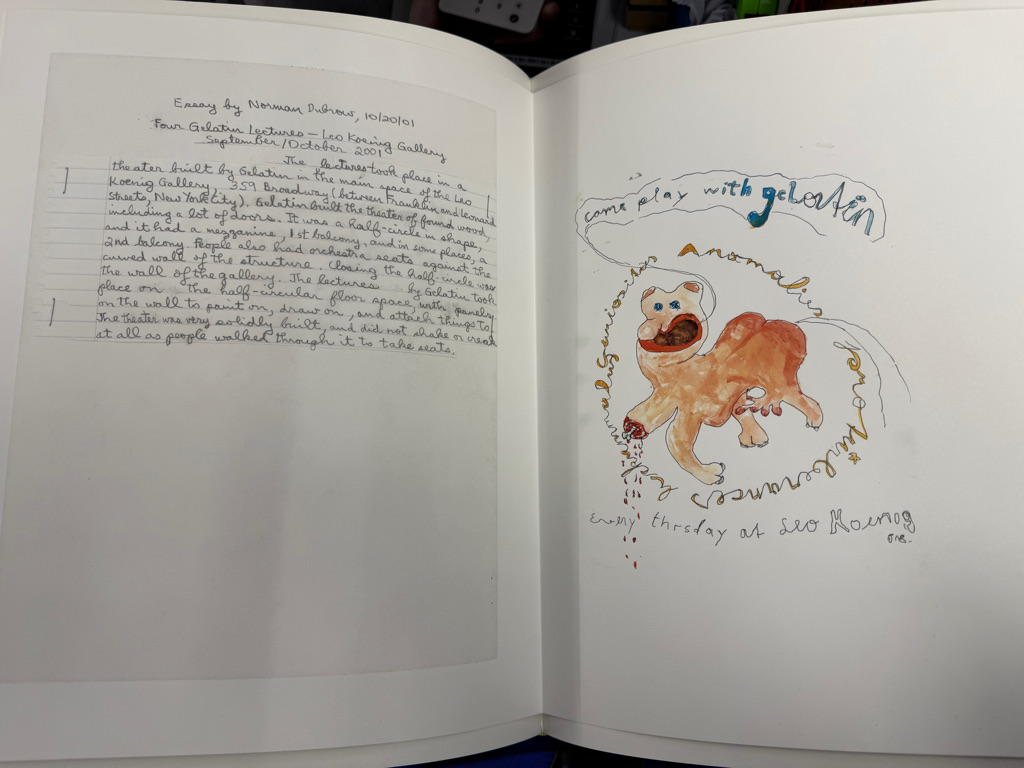 Essay by Norman Dubrow, 10/20/01
Four Gelatin Lectures — Leo Koenig Gallery
September/October 2001
The lectures took place in a
theater built by Gelatin in the main space of the Leo
Koenig Gallery, 359 Broadway (between Franklin and Leonard
Streets, New York City). Gelatin built the theater of found wood,
including a lot of doors. It was a half-circle in shape,
and it had a mezzanine, 1st balcony, and in some places, a
2nd balcony. People also had orchestra seats against the
curved wall of the structure. Closing the half-circle was
the wall of the gallery. The lectures by Gelatin took
place on The half-circular floor space, with panelry
on the wall to paint on, draw on, and attach things to.
The theater was very solidly built, and did not shake or creak
at all as people walked through it to take seats.
come play with geLatin
Anomalies
protuberances
Every thrsday at Leo Koenig